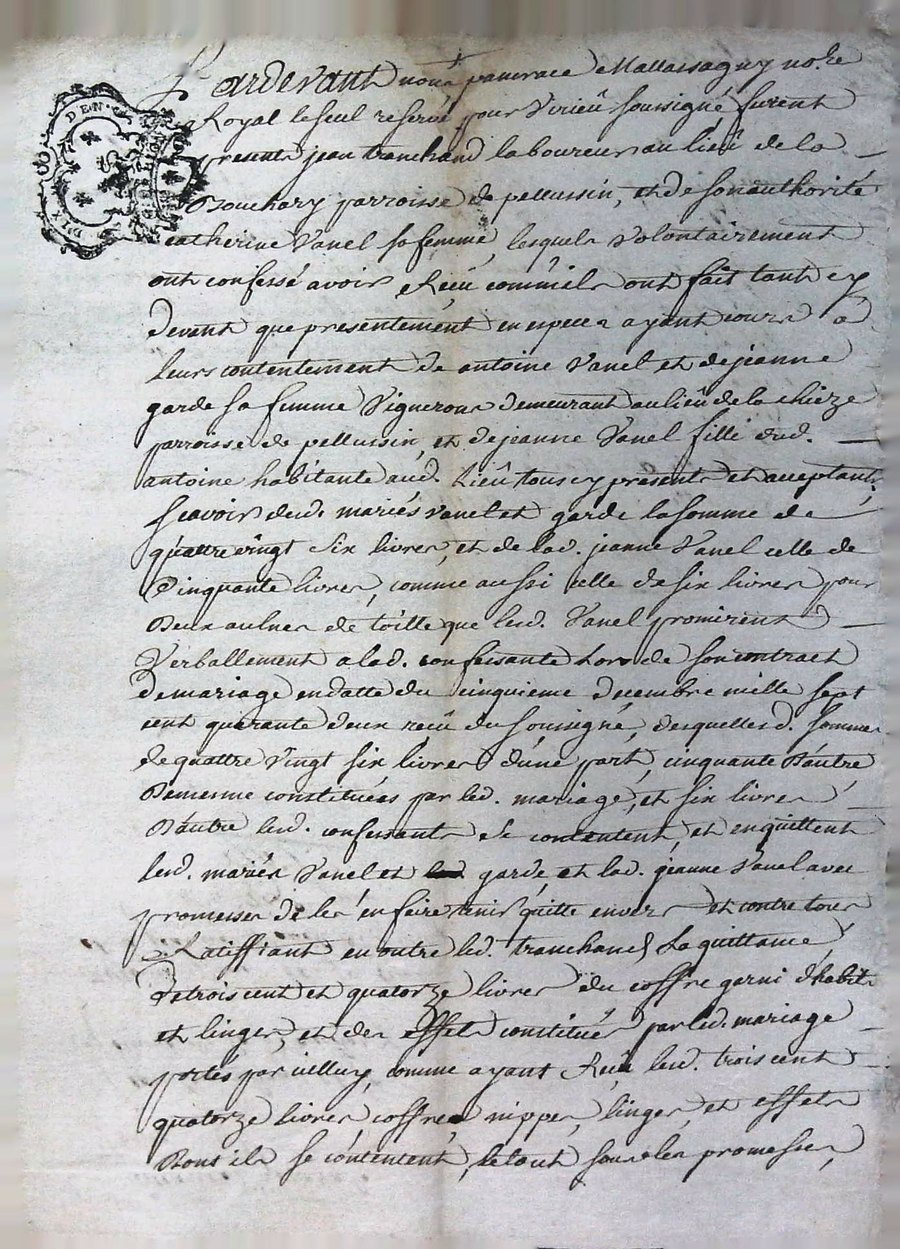 DIX DEN
Pardevant nous pancrace Mallassagny no.re
Royal le seul reservé pour Virieû soussigné furent
presents jean tranchand laboureur au lieû de la
Bouchary parroisse de pellussin, et de son authorité
Catherine Vanel sa femme, lesquels volontairement
ont confessé avoir Reçeû comme ils ont fait tant cy
devant que presentement en especes ayant cours a
leurs contentement de antoine Vanel et de jeanne
garde sa femme Vignerons demeurant au lieû de la chieze
parroisse de pellussin, et de jeanne Vanel fille dud.
antoine habitante aud. Lieû tous cy presents et acceptants
scavoir desd. mariés vanel et garde la somme de
quattre vingt six livres, et de lad. jeanne Vanel celle de
Cinquante livres, comme aussi celle de six livres pour
deux aulnes de toille que lesd. Vanel promirent
Verballement a lad. confessante Lors de son contract
de mariage en datte du cinquieme decembre mille sept
cent quarante deux recû du soussigné, desquelles d. sommes
de quattre vingt six livres d'une part, cinquante d'autre
Dememe constituées par led. mariage, et six livres
D'autre lesd. confessants se contentent, et en quittent
lesd. mariés Vanel et garde, et lad. jeanne Vanel avec
promesses de les en faire tenir quitte envers et contre tous
Ratiffiant en outre led. tranchand La quittance
de trois cent et quatorze livres du coffre garni d'habits
et linges, et des effets constitués par led. mariage
portés par icelluy, comme ayant Reçû lesd. trois cent
quatorze livres coffre nippes, linges, et effets
Dont ils se contentent, le tout sous les promesses,